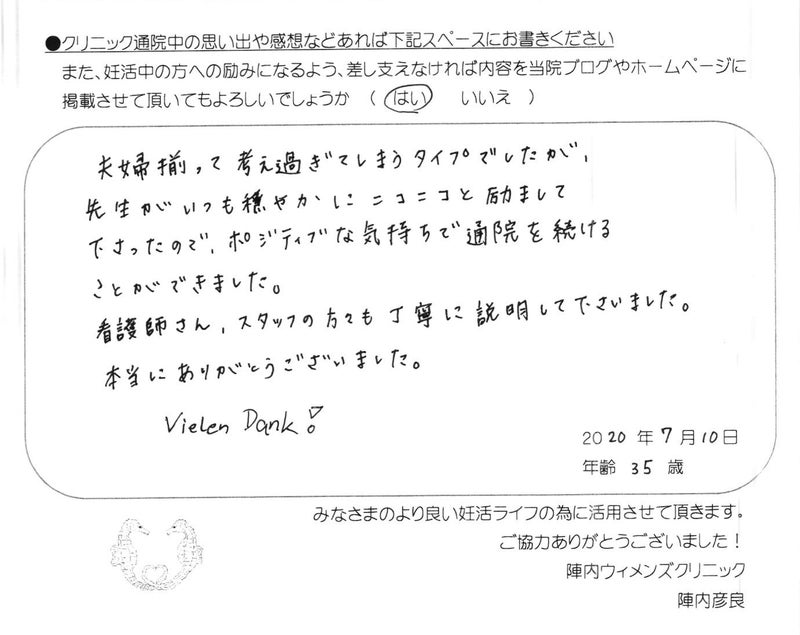 ●クリニック通院中の思い出や感想などあれば下記スペースにお書きください
また、妊活中の方への励みになるよう、差し支えなければ内容を当院ブログやホームページに
掲載させて頂いてもよろしいでしょうか （ はい いいえ ）
夫婦揃って考え過ぎてしまうタイプでしたが、
先生がいつも穏やかにニコニコと励まして
下さったので、ポジティブな気持ちで通院を続ける
ことができました。
看護師さん、スタッフの方々も丁寧に説明して下さいました。
本当にありがとうございました。
Vielen Dank!
2020 年 7 月 10 日
年齢 35 歳
みなさまのより良い妊活ライフの為に活用させて頂きます。
ご協力ありがとうございました！
陣内ウィメンズクリニック
陣内彦良